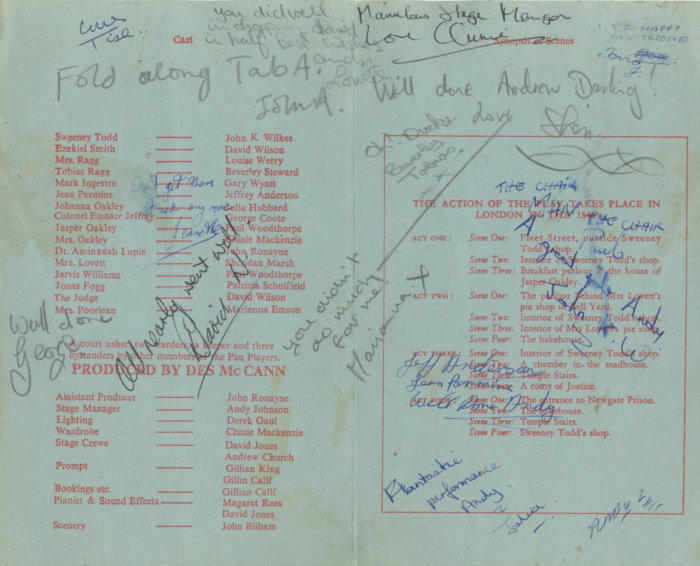 Love
Tisa.
you did well
in chopping David
in half best wishes
and
Louise
Marvelous Stage Manager
Love Clunie
Cast
Synopsis of Scenes
BE HAPPY
Fold along Tab A.
John A.
Well done Andrew Darling!
love
Sian.
Oh! Ducky
Beverley
Sweeney Todd John K. Wilkes
Ezekiel Smith David Wilson
Mrs. Ragg Louise Werry
Tobias Ragg Beverley Steward
Mark Ingestre Gary Wyatt
Jean Parmine Jeffrey Anderson
Johanna Oakley Julia Hubbard
Colonel Eustace Jeffrey George Coote
Jasper Oakley Paul Woodthorpe
Mrs. Oakley Clunie Mackenzie
Dr. Aminadab Lupin John Ronayne
Mrs. Lovett Sheridan Marsh
Jarvis Williams Paul Woodthorpe
Jonas Fogg Patricia Scholfield
The Judge David Wilson
Mrs. Poorlean Marianna Emson
get them
any more
A court usher, warders, keeper and three
bystanders by other members of the Pan Players.
PRODUCED BY DES Mc CANN
Well done
George
All nearly went well
David W.
you didn't
do much
for me!
Marianna. x
Assistant Producer John Ronayne
Stage Manager Andy Johnson
Lighting Derek Gaul
Wardrobe Clunie Mackenzie
Stage Crew David Jones
Andrew Church
Prompt Gillian King
Gillin Callf
Bookings etc. Gillian Callf
Pianist & Sound Effects Magaret Rees
David Jones
Scenery John Bilham
THE CHAIR
MAN THE CHAIR
Paul
THE ACTION OF THE PLAY TAKES PLACE IN
LONDON IN THE 1840's
ACT ONE: Scene One: Fleet Street, outside Sweeney
Todd's shop.
Scene Two: Interior of Sweeney Todd's shop.
Scene Three: Breakfast parlour in the house of
Jasper Oakley.
ACT TWO: Scene One: The parlour behind Mrs Lovett's
pie shop in Bell Yard.
Scene Two: Interior of Sweeney Todd's shop.
Scene Three: Interior of Mrs Lovett's pie shop.
Scene Four: The bakehouse.
ACT THREE: Scene One: Interior of Sweeney Todd's shop.
Scene Two: A chamber in the madhouse.
Scene Three: Temple Stairs.
Scene Four: A court of Justice.
ACT FOUR: Scene One: The entrance to Newgate Prison.
Scene Two: The bakehouse.
Scene Three: Temple Stairs.
Scene Four: Sweeney Todd's shop.
A great job Andy
John
Jeff Anderson
Jean Parmine
Well Done Andy
Phantastic
performance
Andy
Julia